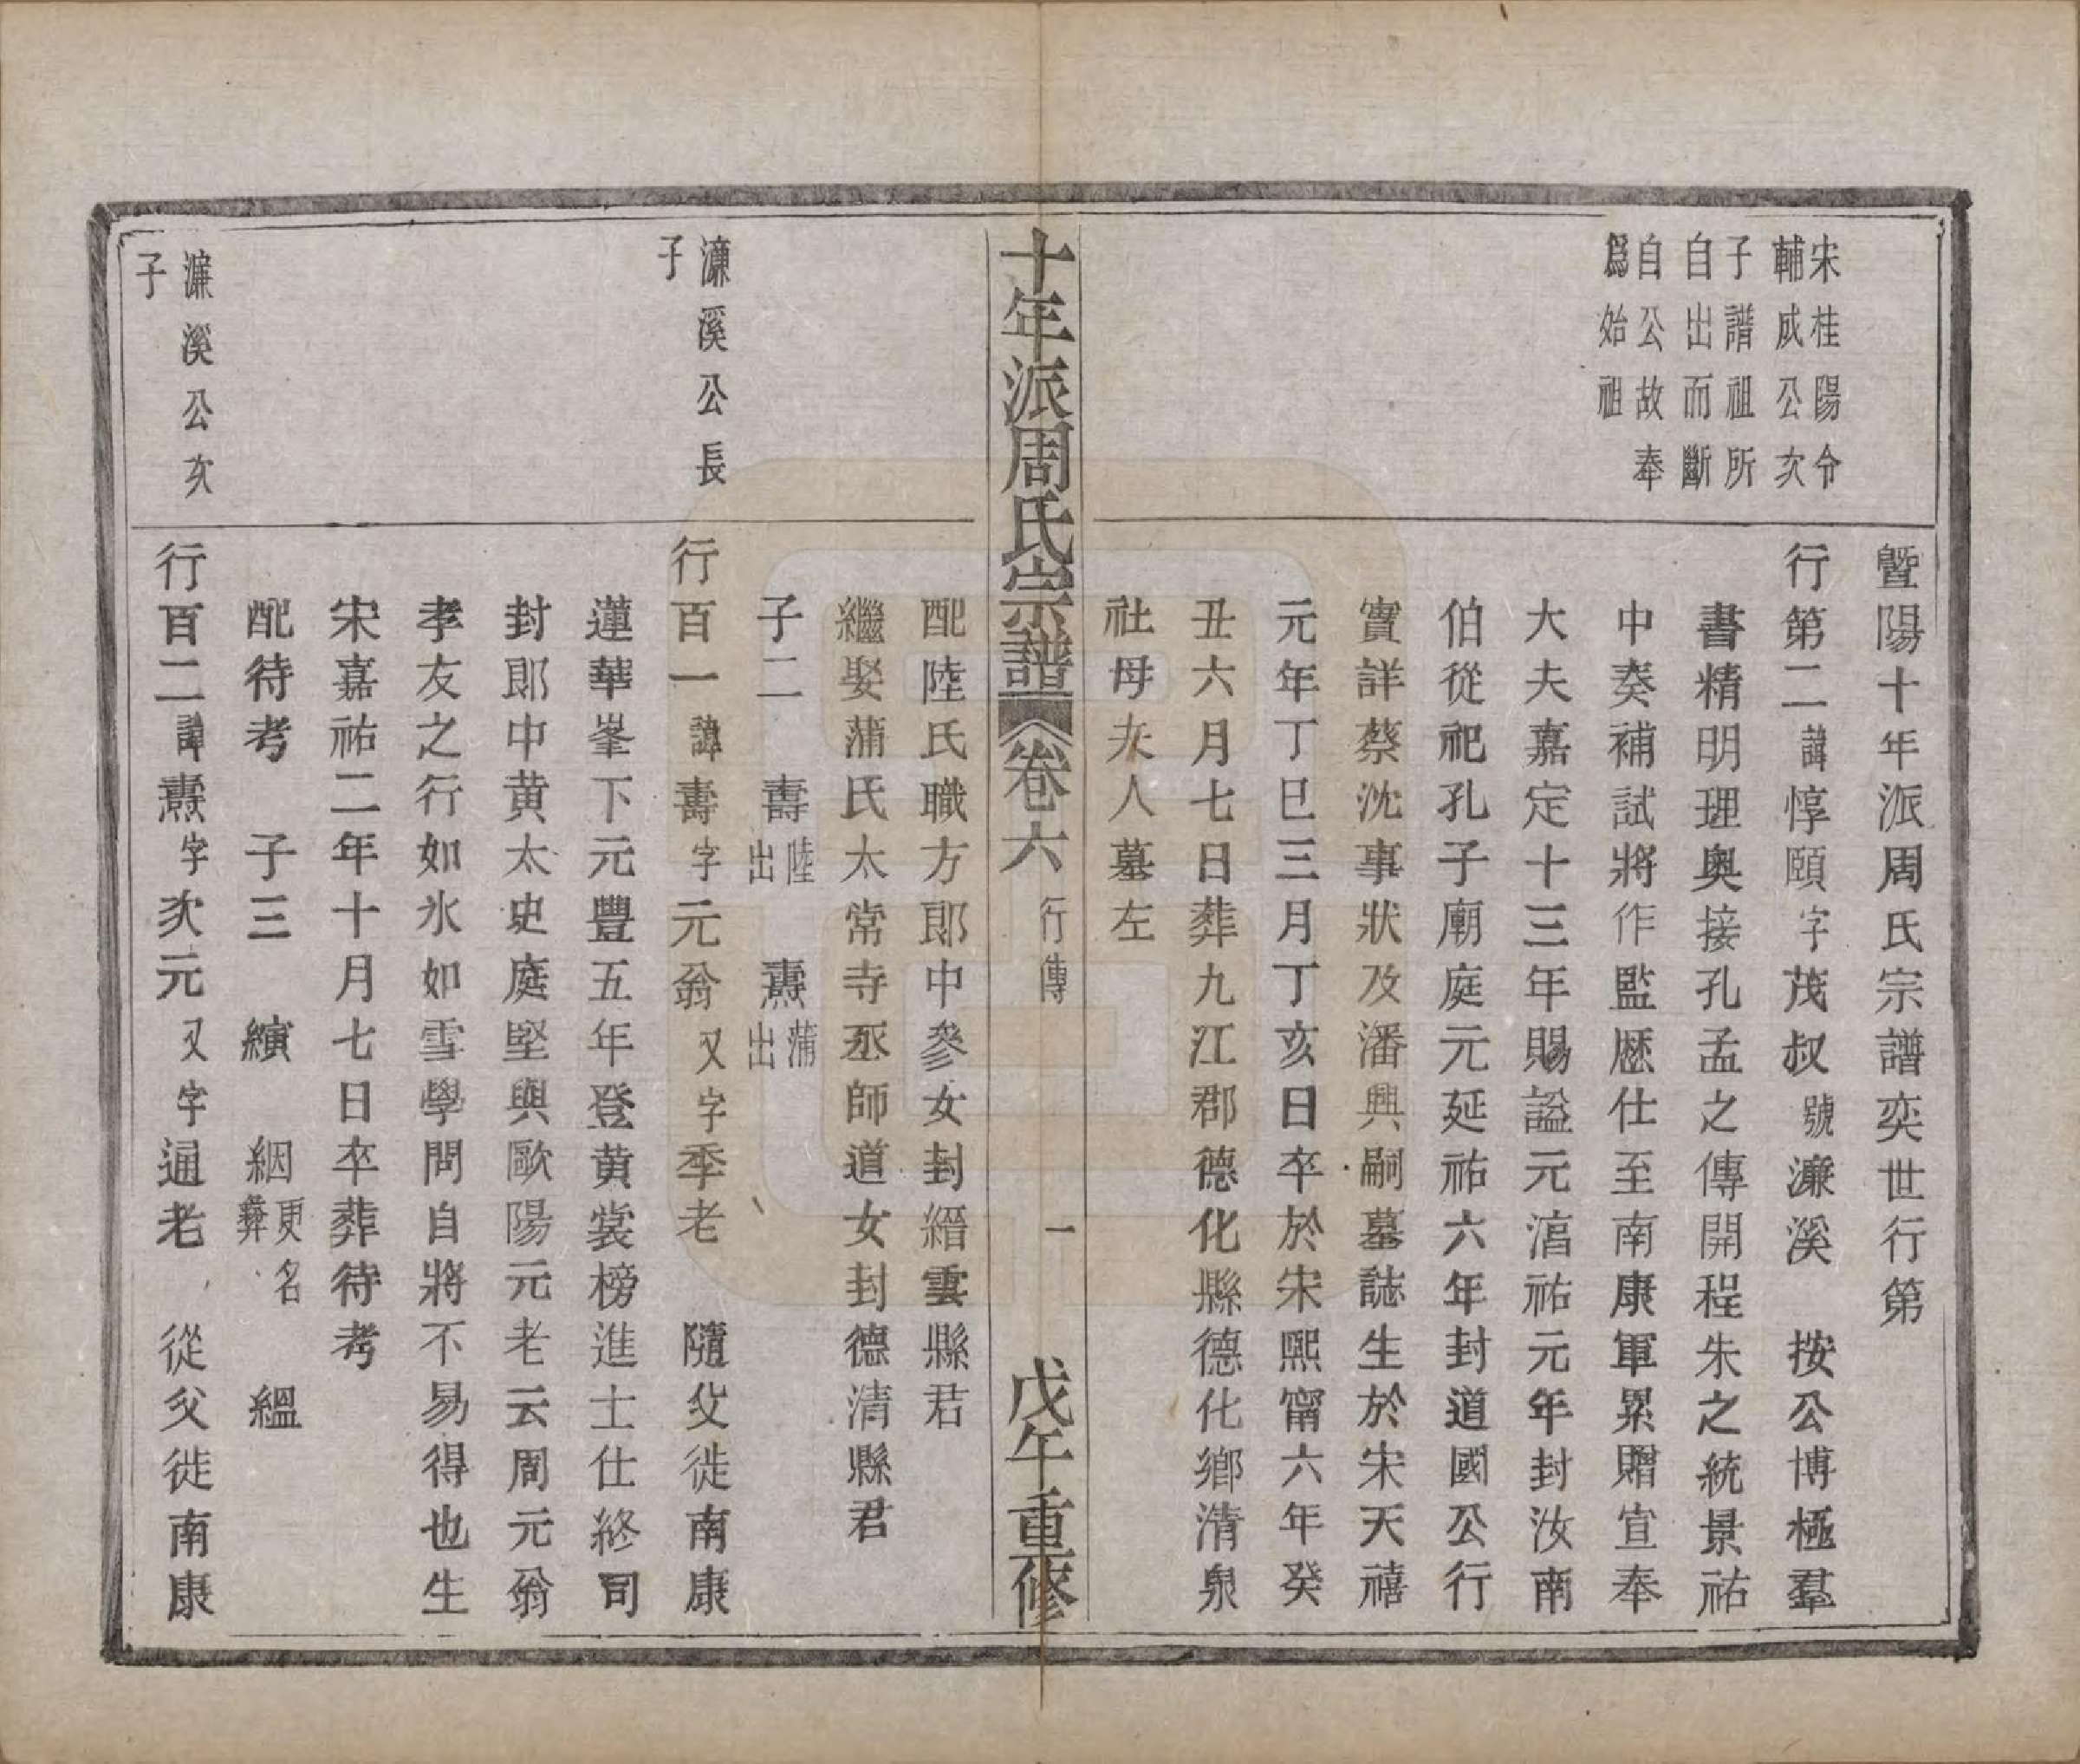 暨陽十年派周氏宗譜奕世行第
宋桂陽令
輔成公次
子譜祖所
自出而斷
自公故奉
爲始祖
行第二諱惇頤字茂叔號濂溪 按公博極羣
書精明理奥接孔孟之傳開程朱之統景祐
中奏補試將作監歷仕至南康軍累贈宣奉
大夫嘉定十三年賜謚元湻祐元年封汝南
伯從祀孔子廟庭元延祐六年封道國公行
實詳蔡沈事狀及潘興嗣墓誌生於宋天禧
元年丁巳三月丁亥日卒於宋熙甯六年癸
丑六月七日葬九江郡德化縣德化鄉清泉
社母夫人墓左
十年派周氏宗譜 卷六 行傳 一 戊午重修
配陸氏職方郎中參女封縉雲縣君
繼娶蒲氏太常寺丞師道女封德清縣君
子二 壽陸出 燾蒲出
濂溪公長
子
行百一諱壽字元翁又字季老 隨父徙南康
蓮華峯下元豐五年登黄裳榜進士仕終司
封郎中黄太史庭堅與歐陽元老云周元翁
孝友之行如氷如雪學問自將不易得也生
宋嘉祐二年十月七日卒葬待考
配待考 子三 縯 絪更名彝 緼
濂溪公次
子
行百二諱燾字次元又字通老 從父徙南康